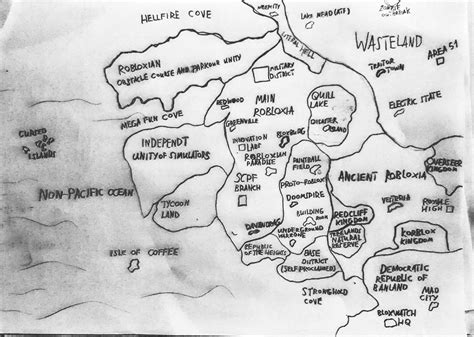 HELLFIRE COVE
LAKE MEAD (ATF)
ZOMBIE
OUTBREAK
LITERAL HELL
WASTELAND
ROBLOXIAN
OBSTACLE COURSE AND PARKOUR UNITY
MILITARY
DISTRICT
TRAITOR
TOWN
AREA 51
REDWOOD
MAIN
ROBLOXIA
QUILL
LAKE
ELECTRIC STATE
MEGA FUN COVE
GREENVILLE
DISASTER
ISLAND
CURSED
ISLANDS
INDEPENDT
UNITY OF SIMULATORS
INNOVATION
LABS
BLOXBURG
ROBLOXIAN
PARADISE
PAINTBALL
FIELD
OVERSEER
KINGDOM
NON-PACIFIC OCEAN
SCPF
BRANCH
PROTO-ROBLOX
ANCIENT ROBLOXIA
DOOMSPIRE
VESTERIA
ROYALE
HIGH
TYCOON
LAND
BUILDING
REDCLIFF
KINGDOM
UNDERGROUND
WARZONE
KORBLOX
KINGDOM
NATURAL
RESERVE
REPUBLIC
OF THE HEIGHTS
BASE
DISTRICT
(SELF PROCLAIMED)
ISLE OF COFFEE
DEMOCRATIC
REPUBLIC OF
BANLAND
STRONGHOLD
COVE
MAD
CITY
BLOXWATCH
HQ